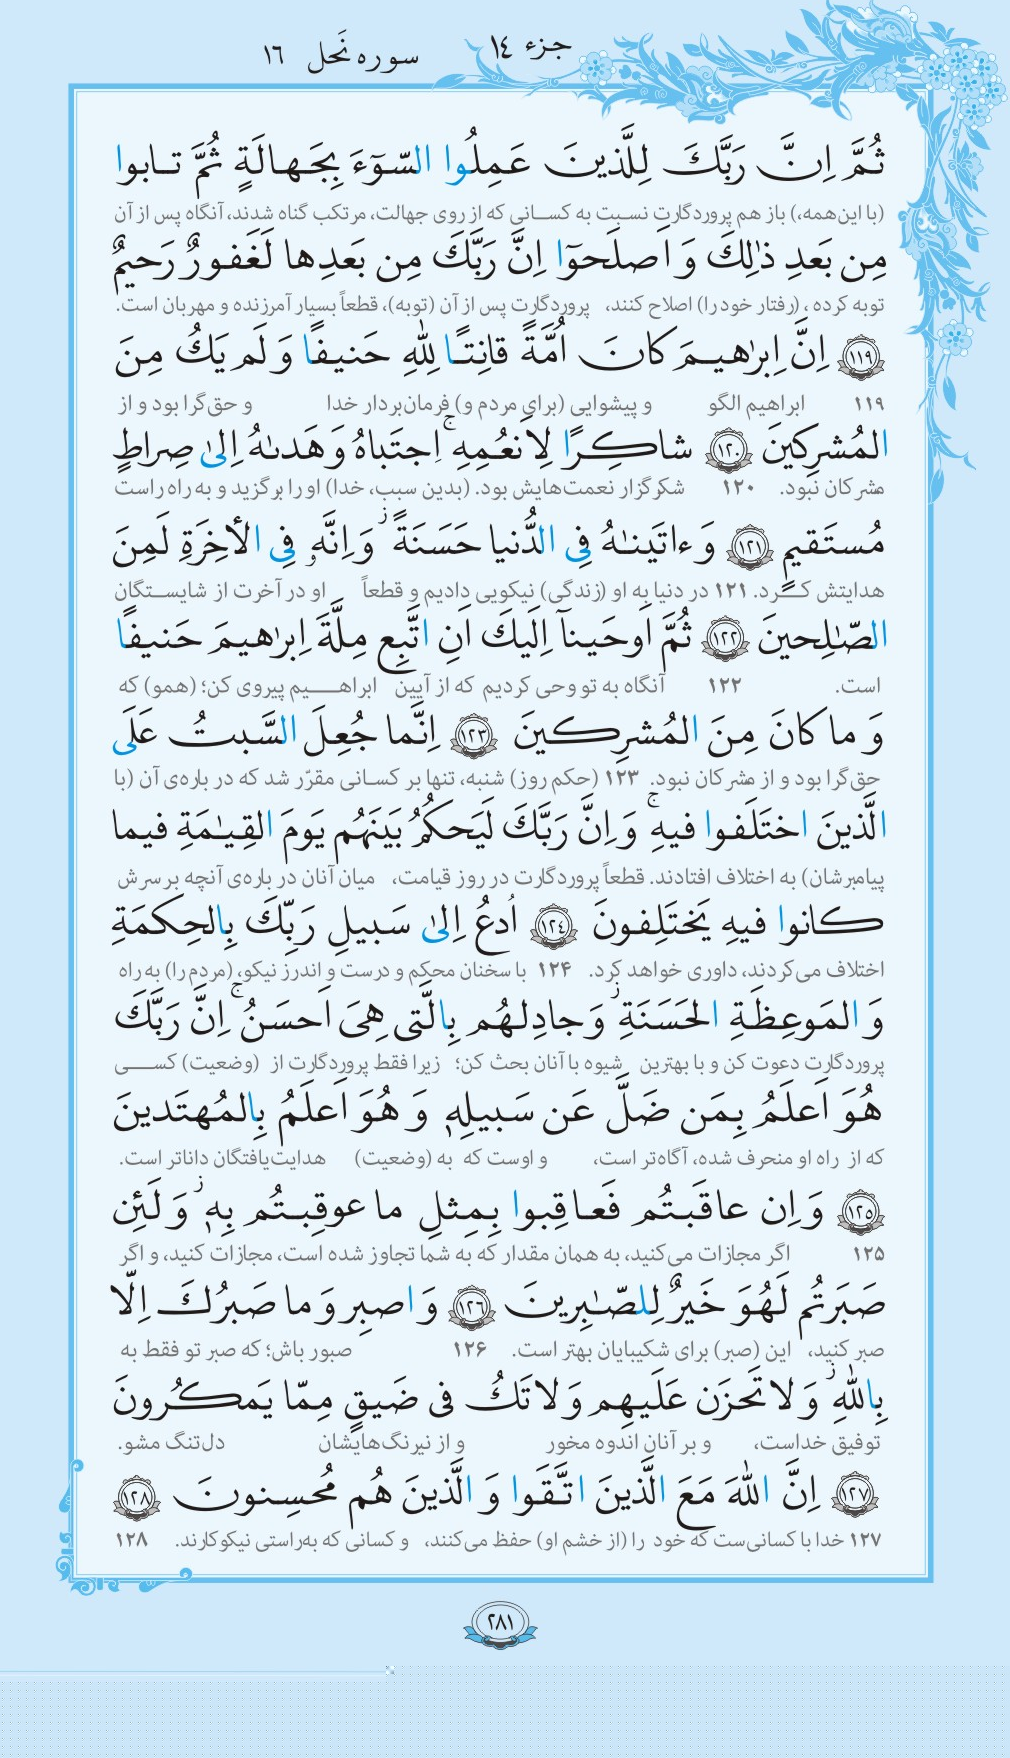 جزء ١٤
سوره نَحل ١٦
ثُمَّ اِنَّ رَبَّكَ لِلَّذينَ عَمِلُوا السّوٓءَ بِجَهالَةٍ ثُمَّ تابوا
(با این‌همه،) باز هم پروردگارت نسبت به کسانی که از روی جهالت، مرتکب گناه شدند، آنگاه پس از آن
مِن بَعدِ ذٰلِكَ وَ اَصلَحوٓا اِنَّ رَبَّكَ مِن بَعدِها لَغَفورٌ رَحيمٌ
توبه کرده، (رفتار خود را) اصلاح کنند، پروردگارت پس از آن (توبه)، قطعاً بسیار آمرزنده و مهربان است.
﴿١١٩﴾ اِنَّ اِبرٰهيمَ كانَ اُمَّةً قانِتًا لِلّٰهِ حَنيفًا وَ لَم يَكُ مِنَ
۱۱۹ ابراهیم الگو و پیشوایی (برای مردم و) فرمان‌بردار خدا و حق‌گرا بود و از
المُشرِكينَ ﴿١٢٠﴾ شاكِرًا لِاَنعُمِهِ ۚ اِجتَباهُ وَ هَدىٰهُ اِلىٰ صِراطٍ
مشرکان نبود. ۱۲۰ شکرگزار نعمت‌هایش بود. (بدین سبب، خدا) او را برگزید و به راه راست
مُستَقيمٍ ﴿١٢١﴾ وَ ءاتَينٰهُ فِى الدُّنيا حَسَنَةً ۖ وَ اِنَّهٗ فِى الأخِرَةِ لَمِنَ
هدایتش کرد. ۱۲۱ در دنیا به او (زندگی) نیکویی دادیم و قطعاً او در آخرت از شایستگان
الصّٰلِحينَ ﴿١٢٢﴾ ثُمَّ اَوحَينآ اِلَيكَ اَنِ اتَّبِع مِلَّةَ اِبرٰهيمَ حَنيفًا
است. ۱۲۲ آنگاه به تو وحی کردیم که از آیین ابراهیم پیروی کن؛ (همو) که
وَ ما كانَ مِنَ المُشرِكينَ ﴿١٢٣﴾ اِنَّما جُعِلَ السَّبتُ عَلَى
حق‌گرا بود و از مشرکان نبود. ۱۲۳ (حکم روز) شنبه، تنها بر کسانی مقرّر شد که در باره‌ی آن (با
الَّذينَ اختَلَفوا فيهِ ۚ وَ اِنَّ رَبَّكَ لَيَحكُمُ بَينَهُم يَومَ القِيٰمَةِ فيما
پیامبرشان) به اختلاف افتادند. قطعاً پروردگارت در روز قیامت، میان آنان در باره‌ی آنچه بر سرش
كانوا فيهِ يَختَلِفونَ ﴿١٢٤﴾ اُدعُ اِلىٰ سَبيلِ رَبِّكَ بِالحِكمَةِ
اختلاف می‌کردند، داوری خواهد کرد. ۱۲۴ با سخنان محکم و درست و اندرز نیکو، (مردم را) به راه
وَ المَوعِظَةِ الحَسَنَةِ ۖ وَ جادِلهُم بِالَّتى هِىَ اَحسَنُ ۚ اِنَّ رَبَّكَ
پروردگارت دعوت کن و با بهترین شیوه با آنان بحث کن؛ زیرا فقط پروردگارت از (وضعیت) کسی
هُوَ اَعلَمُ بِمَن ضَلَّ عَن سَبيلِهٖ وَ هُوَ اَعلَمُ بِالمُهتَدينَ
که از راه او منحرف شده، آگاه‌تر است، و اوست که به (وضعیت) هدایت‌یافتگان داناتر است.
﴿١٢٥﴾ وَ اِن عاقَبتُم فَعاقِبوا بِمِثلِ ما عوقِبتُم بِهٖ ۖ وَ لَئِن
۱۲۵ اگر مجازات می‌کنید، به همان مقدار که به شما تجاوز شده است، مجازات کنید، و اگر
صَبَرتُم لَهُوَ خَيرٌ لِلصّٰبِرينَ ﴿١٢٦﴾ وَ اصبِر وَ ما صَبرُكَ اِلّا
صبر کنید، این (صبر) برای شکیبایان بهتر است. ۱۲۶ صبور باش؛ که صبر تو فقط به
بِاللّٰهِ ۖ وَ لا تَحزَن عَلَيهِم وَ لا تَكُ فى ضَيقٍ مِمّا يَمكُرونَ
توفیق خداست، و بر آنان اندوه مخور و از نیرنگ‌هایشان دل‌تنگ مشو.
﴿١٢٧﴾ اِنَّ اللّٰهَ مَعَ الَّذينَ اتَّقَوا وَ الَّذينَ هُم مُحسِنونَ ﴿١٢٨﴾
۱۲۷ خدا با کسانی‌ست که خود را (از خشم او) حفظ می‌کنند، و کسانی که به‌راستی نیکوکارند. ۱۲۸
٢٨١